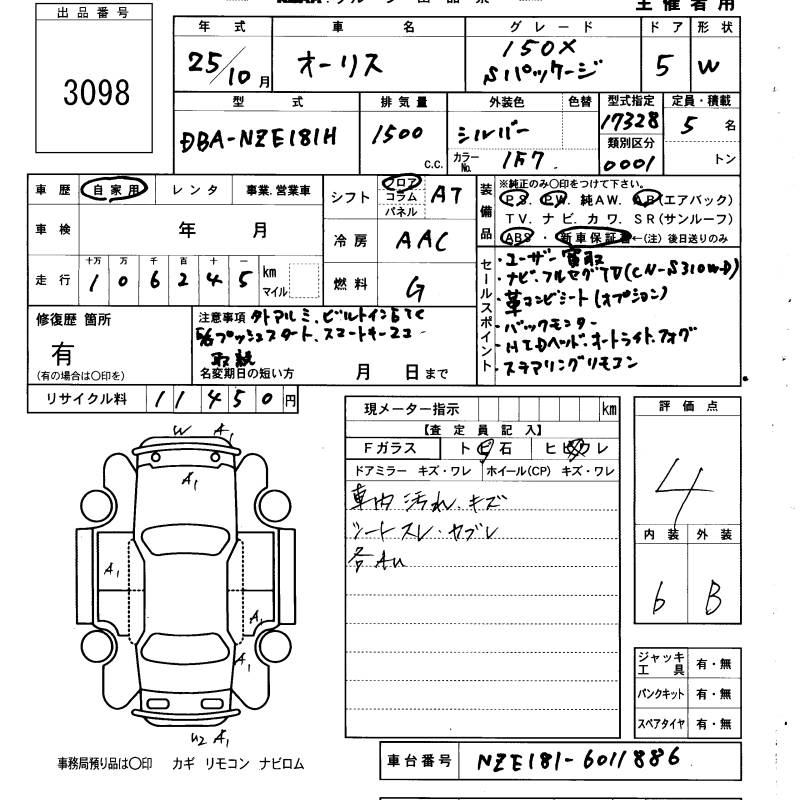 出品番号
3098
主催者用
年式 車名 グレード ドア 形状
25/10月 オーリス 150X Sパッケージ 5 W
型式 排気量 外装色 色替 型式指定 定員・積載
DBA-NZE181H 1500 c.c. シルバー 17328 5名
カラーNo. 1F7 類別区分 0001 トン
車歴 自家用 レンタ 事業.営業車
車検 年 月
走行 十万 万 千 百 十 一
1 0 6 2 4 5 km マイル
シフト フロア コラム パネル AT
冷房 AAC
燃料 G
装備品
※純正のみ〇印をつけて下さい。
P.S. P.W. 純AW. AB(エアバック)
TV. ナビ. カワ. SR(サンルーフ)
ABS・新車保証書←(注)後日送りのみ
セールスポイント
・ユーザー買取
・ナビ.フルセグTV(CN-S310WD)
・革コンビシート(オプション)
・バックモニター
・HIDヘッド.オートライト.フォグ
・ステアリングリモコン
修復歴 箇所
有
(有の場合は〇印を)
注意事項 外アルミ、ビルトインETC
プッシュスタート、スマートキー2コ
取説
名変期日の短い方 月 日まで
リサイクル料 11450円
現メーター指示 km
【査定員記入】
Fガラス トビ石 ヒビワレ
ドアミラー キズ・ワレ ホイール(CP) キズ・ワレ
車内 汚れ.キズ
シートスレ・ヤブレ
各AU
評価点
4
内装 外装
6 B
W A1
A1
A1
A1
A1
U2 A1
ジャッキ工具 有・無
パンクキット 有・無
スペアタイヤ 有・無
事務局預り品は〇印 カギ リモコン ナビロム
車台番号 NZE181-6011886